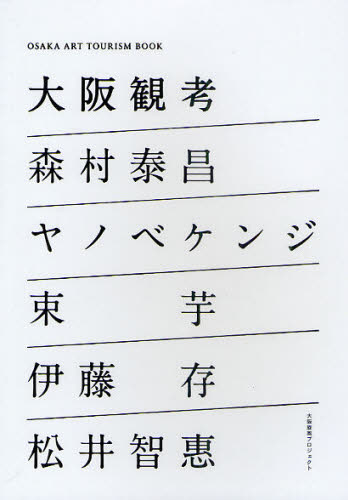 OSAKA ART TOURISM BOOK
大阪観考
森村泰昌
ヤノベケンジ
束芋
伊藤存
松井智惠
大阪旅考プロジェクト